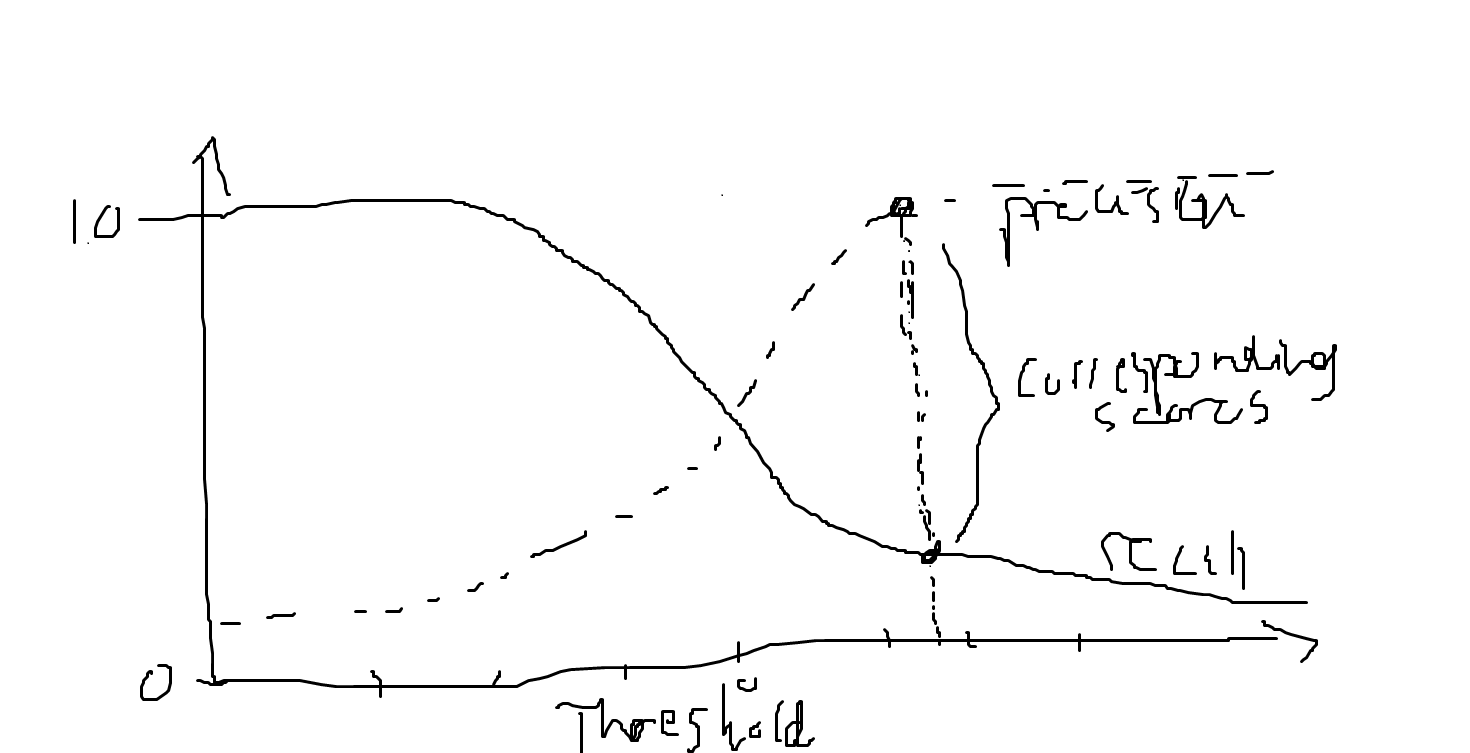 1.0
precision
corresponding
scores
recall
0
Threshold